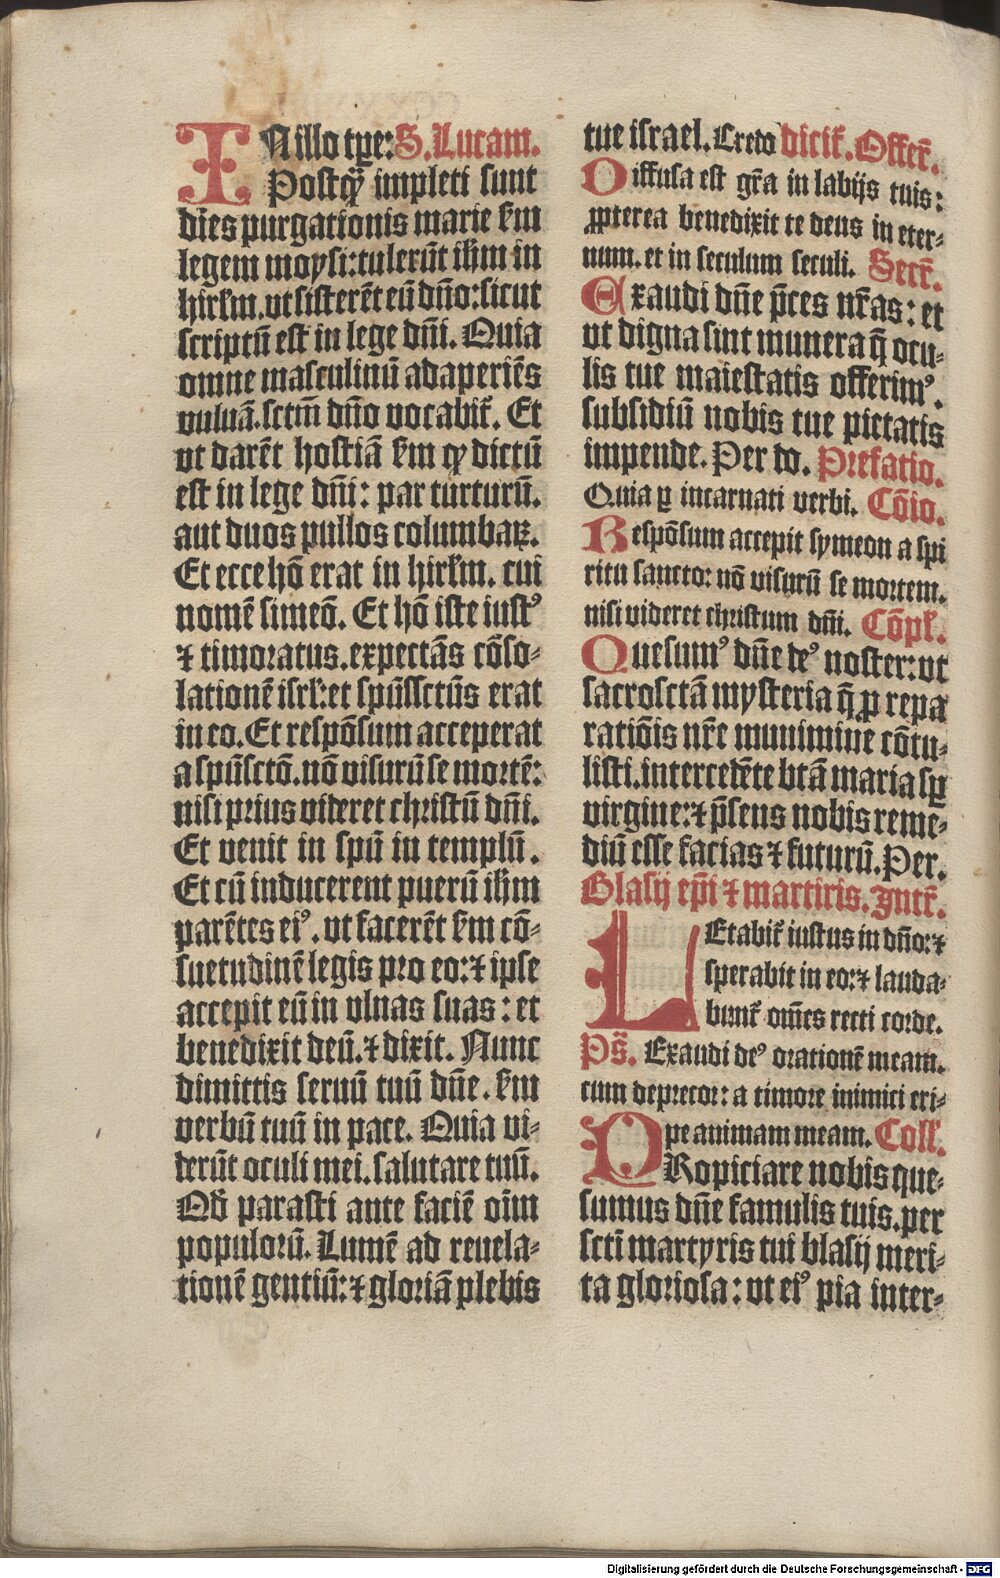 IN illo tꝑe: S. Lucam.
Postꝙ̃ impleti sunt
dies purgationis marie ẜm
legem moysi: tulerũt ihm̃ in
hirłm. ut sisterẽt eũ dño: sicut
scriptũ est in lege dñi. Quia
omne masculinũ adaperiẽs
vuluã. sctm̃ dño vocabit̃. Et
ut darẽt hostiã ẜm ꝙ dictũ
est in lege dñi: par turturũ.
aut duos pullos columbaꝝ.
Et ecce hõ erat in hirłm. cui
nomẽ simeõ. Et hõ iste iustꝰ
⁊ timoratus. expectãs cõso⸗
lationẽ isrł: et spũssctũs erat
in eo. Et respõsum acceperat
a spũsctõ. nõ visurũ se mortẽ:
nisi prius videret christũ dñi.
Et venit in spũ in templũ.
Et cũ inducerent puerũ ihm̃
parẽtes eiꝰ. ut facerẽt ẜm cõ⸗
suetudinẽ legis pro eo: ⁊ ipse
accepit eũ in ulnas suas: et
benedixit deũ. ⁊ dixit. Nunc
dimittis seruũ tuũ dñe. ẜm
verbũ tuũ in pace. Quia vi⸗
derũt oculi mei. salutare tuũ.
Qd̃ parasti ante faciẽ oĩm
populorũ. Lumẽ ad reuela⸗
tionẽ gentiũ: ⁊ gloriã plebis
tue israel. Credo dicit̃. Offer̃.
Diffusa est gr̃a in labijs tuis:
ꝓpterea benedixit te deus in eter⸗
num. et in seculum seculi. Secr̃.
Exaudi dñe p̃ces nr̃as: et
ut digna sint munera q̃ ocu⸗
lis tue maiestatis offerimꝰ.
subsidiũ nobis tue pietatis
impende. Per do. Prefatio.
Quia ꝑ incarnati verbi. Cõio.
Respõsum accepit symeon a spi
ritu sancto: nõ visurũ se mortem.
nisi videret christum dñi. Cõpł.
Quesumꝰ dñe deꝰ noster: ut
sacrosctã mysteria q̃ ꝓ repa
ratiõis nr̃e munimine cõtu⸗
listi. intercedẽte btã maria sꝑ
virgine: ⁊ p̃sens nobis reme⸗
diũ esse facias ⁊ futurũ. Per.
Blasij ep̃i ⁊ martiris. Intr̃.
LEtabit̃ iustus in dño: ⁊
sperabit in eo: ⁊ lauda⸗
bunt̃ om̃es recti corde.
Ps̃. Exaudi deꝰ orationẽ meam.
cum deprecor: a timore inimici eri⸗
pe animam meam. Coll̃.
PRopiciare nobis que⸗
sumus dñe famulis tuis. per
scti martyris tui blasij meri⸗
ta gloriosa: ut eiꝰ pia inter⸗
Digitalisierung gefördert durch die Deutsche Forschungsgemeinschaft - DFG